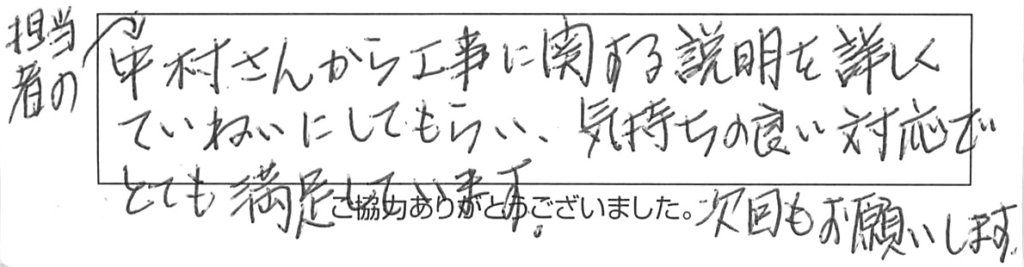 担当者の
中村さんから工事に関する説明を詳しく
ていねいにしてもらい、気持ちの良い対応で
とても満足しています。
ご協力ありがとうございました。
次回もお願いします。